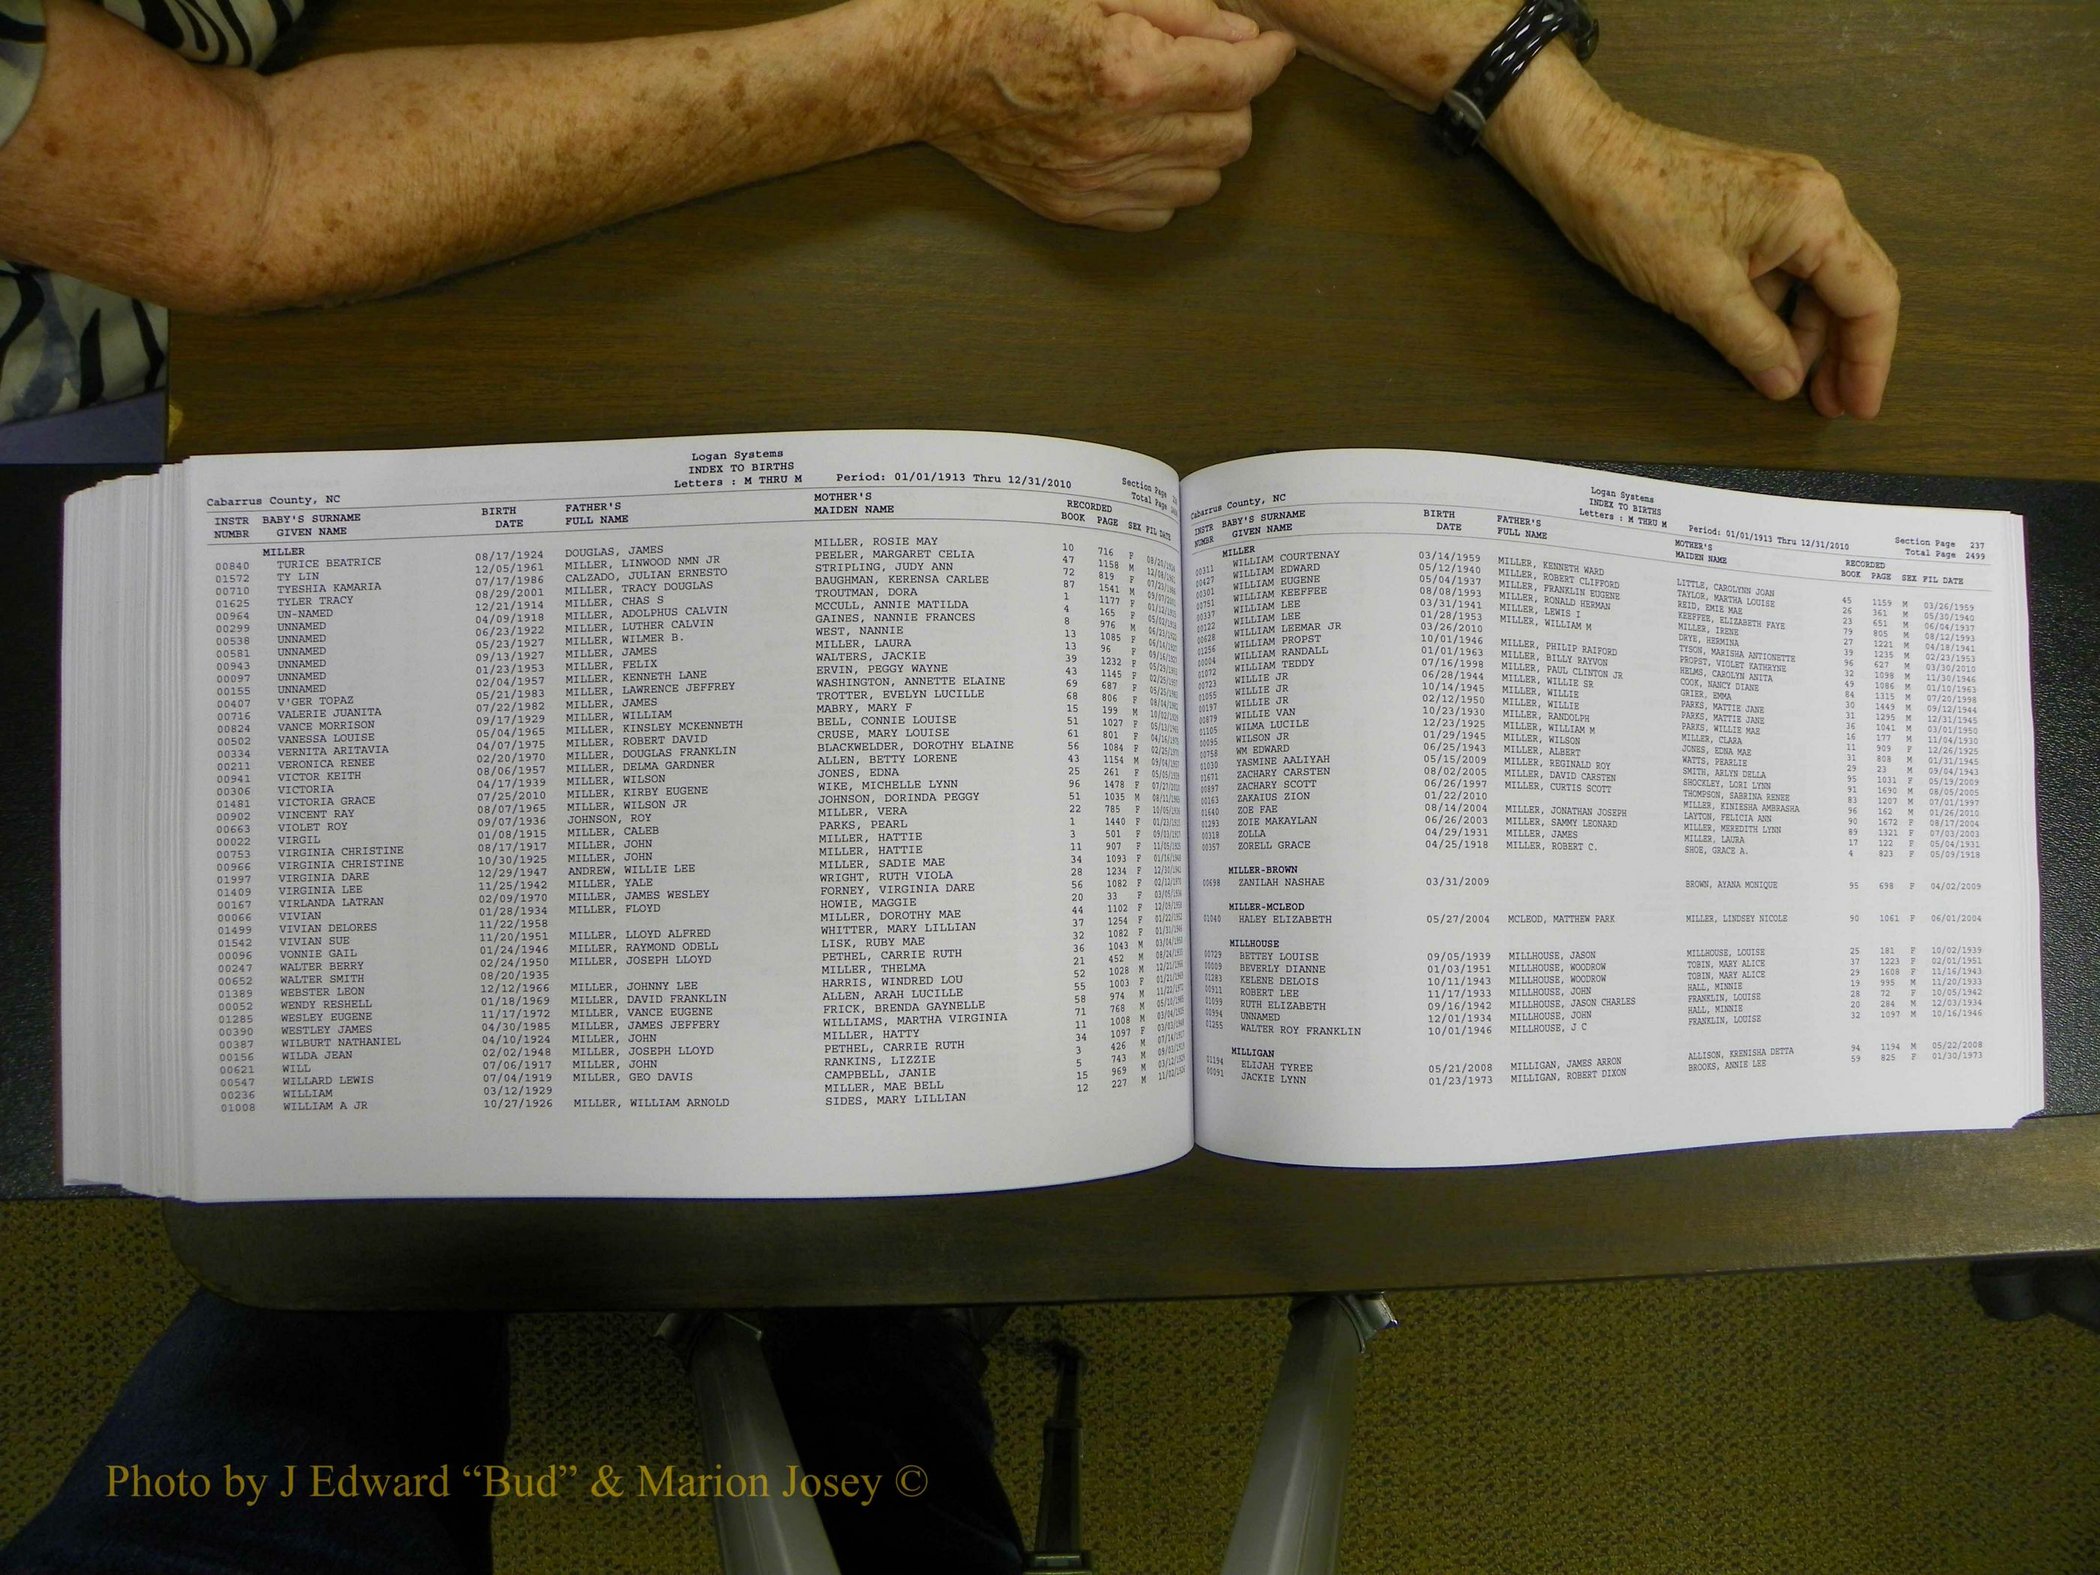 Logan Systems
INDEX TO BIRTHS
Letters : M THRU M Period: 01/01/1913 Thru 12/31/2010
Section Page
Total Page
Cabarrus County, NC
INSTR BABY'S SURNAME BIRTH FATHER'S MOTHER'S RECORDED
NUMBR GIVEN NAME DATE FULL NAME MAIDEN NAME BOOK PAGE SEX FIL DATE
MILLER
00840 TURICE BEATRICE 08/17/1924 DOUGLAS, JAMES MILLER, ROSIE MAY 10 716 F
01572 TY LIN 12/05/1961 MILLER, LINWOOD NMN JR PEELER, MARGARET CELIA 47 1158 M
00710 TYESHIA KAMARIA 07/17/1986 CALZADO, JULIAN ERNESTO STRIPLING, JUDY ANN 72 819 F
01625 TYLER TRACY 08/29/2001 MILLER, TRACY DOUGLAS BAUGHMAN, KERENSA CARLEE 87 1541 M
00964 UN-NAMED 12/21/1914 MILLER, CHAS S TROUTMAN, DORA 1 1177 F
00299 UNNAMED 04/09/1918 MILLER, ADOLPHUS CALVIN MCCULL, ANNIE MATILDA 4 165 F
00538 UNNAMED 06/23/1922 MILLER, LUTHER CALVIN GAINES, NANNIE FRANCES 8 976 M
00581 UNNAMED 05/23/1927 MILLER, WILMER B. WEST, NANNIE 13 1085 F
00943 UNNAMED 09/13/1927 MILLER, JAMES MILLER, LAURA 13 96 F
00097 UNNAMED 01/23/1953 MILLER, FELIX WALTERS, JACKIE 39 1232 F
00155 UNNAMED 02/04/1957 MILLER, KENNETH LANE ERVIN, PEGGY WAYNE 43 1145 F
00407 V'GER TOPAZ 05/21/1983 MILLER, LAWRENCE JEFFREY WASHINGTON, ANNETTE ELAINE 69 687 F
00716 VALERIE JUANITA 07/22/1982 MILLER, JAMES TROTTER, EVELYN LUCILLE 68 806 F
00824 VANCE MORRISON 09/17/1929 MILLER, WILLIAM MABRY, MARY F 15 199 M
00502 VANESSA LOUISE 05/04/1965 MILLER, KINSLEY MCKENNETH BELL, CONNIE LOUISE 51 1027 F
00334 VERNITA ARITAVIA 04/07/1975 MILLER, ROBERT DAVID CRUSE, MARY LOUISE 61 801 F
00211 VERONICA RENEE 02/20/1970 MILLER, DOUGLAS FRANKLIN BLACKWELDER, DOROTHY ELAINE 56 1084 F
00941 VICTOR KEITH 08/06/1957 MILLER, DELMA GARDNER ALLEN, BETTY LORENE 43 1154 M
00306 VICTORIA 04/17/1939 MILLER, WILSON JONES, EDNA 25 261 F
01481 VICTORIA GRACE 07/25/2010 MILLER, KIRBY EUGENE WIKE, MICHELLE LYNN 96 1478 F
00902 VINCENT RAY 08/07/1965 MILLER, WILSON JR JOHNSON, DORINDA PEGGY 51 1035 M
00663 VIOLET ROY 09/07/1936 JOHNSON, ROY MILLER, VERA 22 785 F
00022 VIRGIL 01/08/1915 MILLER, CALEB PARKS, PEARL 1 1440 F
00753 VIRGINIA CHRISTINE 08/17/1917 MILLER, JOHN MILLER, HATTIE 3 501 F
00966 VIRGINIA CHRISTINE 10/30/1925 MILLER, JOHN MILLER, HATTIE 11 907 F
01997 VIRGINIA DARE 12/29/1947 ANDREW, WILLIE LEE MILLER, SADIE MAE 34 1093 F
01409 VIRGINIA LEE 11/25/1942 MILLER, YALE WRIGHT, RUTH VIOLA 28 1234 F
00167 VIRLANDA LATRAN 02/09/1970 MILLER, JAMES WESLEY FORNEY, VIRGINIA DARE 56 1082 F
00066 VIVIAN 01/28/1934 MILLER, FLOYD HOWIE, MAGGIE 20 33 F
01499 VIVIAN DELORES 11/22/1958 MILLER, DOROTHY MAE 44 1102 F
01542 VIVIAN SUE 11/20/1951 MILLER, LLOYD ALFRED WHITTER, MARY LILLIAN 37 1254 F
00096 VONNIE GAIL 01/24/1946 MILLER, RAYMOND ODELL LISK, RUBY MAE 32 1082 F
00247 WALTER BERRY 02/24/1950 MILLER, JOSEPH LLOYD PETHEL, CARRIE RUTH 36 1043 M
00652 WALTER SMITH 08/20/1935 MILLER, THELMA 21 452 M
01389 WEBSTER LEON 12/12/1966 MILLER, JOHNNY LEE HARRIS, WINDRED LOU 52 1028 M
00052 WENDY RESHELL 01/18/1969 MILLER, DAVID FRANKLIN ALLEN, ARAH LUCILLE 55 1003 F
01285 WESLEY EUGENE 11/17/1972 MILLER, VANCE EUGENE FRICK, BRENDA GAYNELLE 58 974 M
00390 WESTLEY JAMES 04/30/1985 MILLER, JAMES JEFFERY WILLIAMS, MARTHA VIRGINIA 71 768 M
00387 WILBURT NATHANIEL 04/10/1924 MILLER, JOHN MILLER, HATTY 11 1008 M
00156 WILDA JEAN 02/02/1948 MILLER, JOSEPH LLOYD PETHEL, CARRIE RUTH 34 1097 F
00621 WILL 07/06/1917 MILLER, JOHN RANKINS, LIZZIE 3 426 M
00547 WILLARD LEWIS 07/04/1919 MILLER, GEO DAVIS CAMPBELL, JANIE 5 743 M
00236 WILLIAM 03/12/1929 MILLER, MAE BELL 15 969 M
01008 WILLIAM A JR 10/27/1926 MILLER, WILLIAM ARNOLD SIDES, MARY LILLIAN 12 227 M
Logan Systems
INDEX TO BIRTHS
Letters : M THRU M Period: 01/01/1913 Thru 12/31/2010
Section Page 237
Total Page 2499
Cabarrus County, NC
INSTR BABY'S SURNAME BIRTH FATHER'S MOTHER'S RECORDED
NUMBR GIVEN NAME DATE FULL NAME MAIDEN NAME BOOK PAGE SEX FIL DATE
MILLER
00311 WILLIAM COURTENAY 03/14/1959 MILLER, KENNETH WARD LITTLE, CAROLYNN JOAN 45 1159 M 03/26/1959
00427 WILLIAM EDWARD 05/12/1940 MILLER, ROBERT CLIFFORD TAYLOR, MARTHA LOUISE 26 361 M 05/30/1940
00301 WILLIAM EUGENE 05/04/1937 MILLER, FRANKLIN EUGENE REID, EMIE MAE 23 651 M 06/04/1937
00751 WILLIAM KEEFFEE 08/08/1993 MILLER, RONALD HERMAN KEEFFEE, ELIZABETH FAYE 79 805 M 08/12/1993
00337 WILLIAM LEE 03/31/1941 MILLER, LEWIS I MILLER, IRENE 27 1221 M 04/18/1941
00122 WILLIAM LEE 01/28/1953 MILLER, WILLIAM M DRYE, HERMINA 39 1235 M 02/23/1953
00628 WILLIAM LEEMAR JR 03/26/2010 TYSON, MARISHA ANTIONETTE 96 627 M 03/30/2010
01256 WILLIAM PROPST 10/01/1946 MILLER, PHILIP RAIFORD PROPST, VIOLET KATHRYNE 32 1098 M 11/30/1946
00004 WILLIAM RANDALL 01/01/1963 MILLER, BILLY RAYVON HELMS, CAROLYN ANITA 49 1086 M 01/10/1963
01072 WILLIAM TEDDY 07/16/1998 MILLER, PAUL CLINTON JR COOK, NANCY DIANE 84 1315 M 07/20/1998
00723 WILLIE JR 06/28/1944 MILLER, WILLIE SR GRIER, EMMA 30 1449 M 09/12/1944
01055 WILLIE JR 10/14/1945 MILLER, WILLIE PARKS, MATTIE JANE 31 1295 M 12/31/1945
00197 WILLIE JR 02/12/1950 MILLER, WILLIE PARKS, MATTIE JANE 36 1041 M 03/01/1950
00879 WILLIE VAN 10/23/1930 MILLER, RANDOLPH PARKS, WILLIE MAE 16 177 M 11/04/1930
01105 WILMA LUCILE 12/23/1925 MILLER, WILLIAM M MILLER, CLARA 11 909 F 12/26/1925
00095 WILSON JR 01/29/1945 MILLER, WILSON JONES, EDNA MAE 31 808 M 01/31/1945
00758 WM EDWARD 06/25/1943 MILLER, ALBERT WATTS, PEARLIE 29 23 M 09/04/1943
01030 YASMINE AALIYAH 05/15/2009 MILLER, REGINALD ROY SMITH, ARLYN DELLA 95 1031 F 05/19/2009
01671 ZACHARY CARSTEN 08/02/2005 MILLER, DAVID CARSTEN SHOCKLEY, LORI LYNN 91 1690 M 08/05/2005
00897 ZACHARY SCOTT 06/26/1997 MILLER, CURTIS SCOTT THOMPSON, SABRINA RENEE 83 1207 M 07/01/1997
00163 ZAKAIUS ZION 01/22/2010 MILLER, KINIESHA AMBRASHA 96 162 M 01/26/2010
01640 ZOE FAE 08/14/2004 MILLER, JONATHAN JOSEPH LAYTON, FELICIA ANN 90 1672 F 08/17/2004
01293 ZOIE MAKAYLAN 06/26/2003 MILLER, SAMMY LEONARD MILLER, MEREDITH LYNN 89 1321 F 07/03/2003
00318 ZOLLA 04/29/1931 MILLER, JAMES MILLER, LAURA 17 122 F 05/04/1931
00357 ZORELL GRACE 04/25/1918 MILLER, ROBERT C. SHOE, GRACE A. 4 823 F 05/09/1918
MILLER-BROWN
00698 ZANILAH NASHAE 03/31/2009 BROWN, AYANA MONIQUE 95 698 F 04/02/2009
MILLER-MCLEOD
01040 HALEY ELIZABETH 05/27/2004 MCLEOD, MATTHEW PARK MILLER, LINDSEY NICOLE 90 1061 F 06/01/2004
MILLHOUSE
00729 BETTEY LOUISE 09/05/1939 MILLHOUSE, JASON MILLHOUSE, LOUISE 25 181 F 10/02/1939
00009 BEVERLY DIANNE 01/03/1951 MILLHOUSE, WOODROW TOBIN, MARY ALICE 37 1223 F 02/01/1951
01283 KELENE DELOIS 10/11/1943 MILLHOUSE, WOODROW TOBIN, MARY ALICE 29 1608 F 11/16/1943
00911 ROBERT LEE 11/17/1933 MILLHOUSE, JOHN HALL, MINNIE 19 995 M 11/20/1933
01099 RUTH ELIZABETH 09/16/1942 MILLHOUSE, JASON CHARLES FRANKLIN, LOUISE 28 72 F 10/05/1942
00994 UNNAMED 12/01/1934 MILLHOUSE, JOHN HALL, MINNIE 20 284 M 12/03/1934
01255 WALTER ROY FRANKLIN 10/01/1946 MILLHOUSE, J C FRANKLIN, LOUISE 32 1097 M 10/16/1946
MILLIGAN
01194 ELIJAH TYREE 05/21/2008 MILLIGAN, JAMES ARRON ALLISON, KRENISHA DETTA 94 1194 M 05/22/2008
00091 JACKIE LYNN 01/23/1973 MILLIGAN, ROBERT DIXON BROOKS, ANNIE LEE 59 825 F 01/30/1973
Photo by J Edward “Bud” & Marion Josey ©